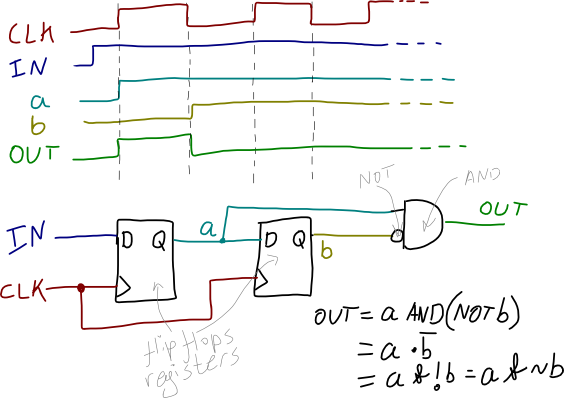 CLK
IN
a
b
OUT
NOT
AND
IN
D Q
a
D Q
b
OUT
CLK
flip flops
registers
OUT = a AND (NOT b)
= a · b̅
= a & !b = a & ~b